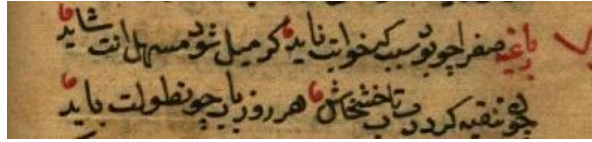 رباعیه صفرا چو بود سبب که خوابت ناید کر میل شود مسهل انت شاید
چون تنقیه کرده خشخاش هر روز باب جو نطولت باید